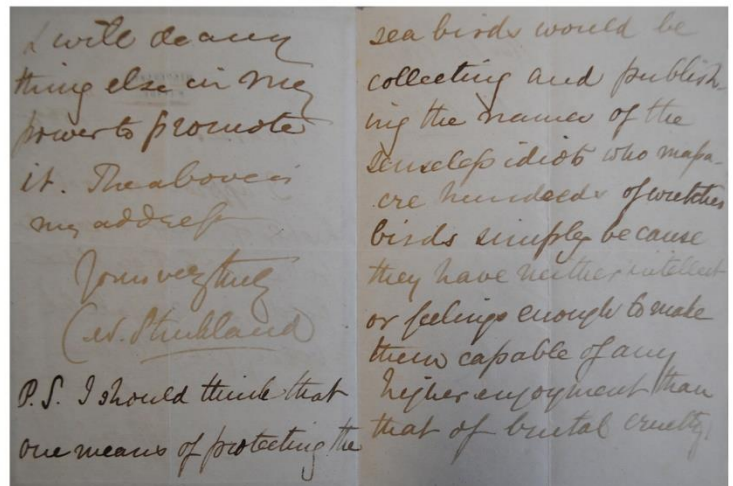 I will do any
thing else in my
power to promote
it. The above is
my address
Yours very truly
W. Strickland
P.S. I should think that
one means of protecting the
sea birds would be
collecting and publish-
ing the names of the
senseless idiots who massa-
cre hundreds of wretched
birds simply because
they have neither intellect
or feelings enough to make
them capable of any
higher enjoyment than
that of brutal cruelty.